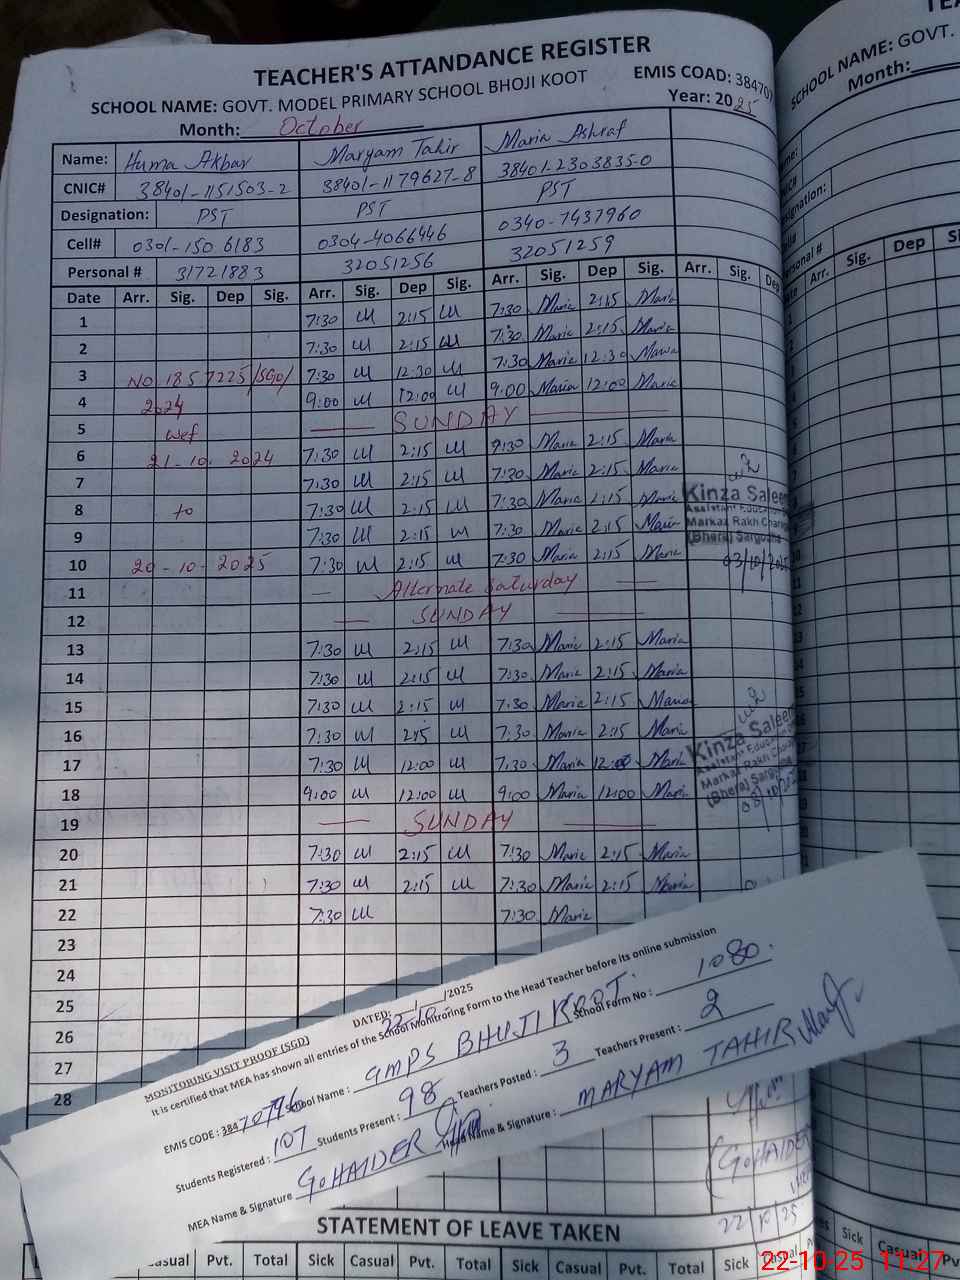 TEACHER'S ATTANDANCE REGISTER
SCHOOL NAME: GOVT. MODEL PRIMARY SCHOOL BHOJI KOOT EMIS COAD: 38470
Month: October Year: 2025
Name: Huma Akbar Maryam Tahir Maria Ashraf
CNIC# 38401-1151503-2 38401-1179627-8 38401-2303835-0
Designation: PST PST PST
Cell# 0301-150 6183 0304-4066446 0340-7437960
Personal # 31721883 32051256 32051259
Date Arr. Sig. Dep Sig. Arr. Sig. Dep Sig. Arr. Sig. Dep Sig. Arr. Sig. Dep
1 7:30 2:15 7:30 Maria 2:15 Maria
2 7:30 2:15 7:30 Maria 2:15 Maria
3 No 185 7225/SGO/ 7:30 12:30 7:30 Maria 12:30 Maria
4 2024 9:00 12:00 9:00 Maria 12:00 Maria
5 SUNDAY
wef
6 21-10. 2024 7:30 2:15 Maria 2:15 Maria
7 7:30 2:15 7:30 Maria 2:15 Maria
8 to 7:30 2:15 7:30 Maria 2:15 Maria
9 7:30 2:15 7:30 Maria 2:15 Maria
10 20-10-2025 7:30 2:15 7:30 Maria 2:15 Maria
11 Alternate Saturday
12 SUNDAY
13 7:30 2:15 7:30 Maria 2:15 Maria
14 7:30 2:15 7:30 Maria 2:15 Maria
15 7:30 2:15 7:30 Maria 2:15 Maria
16 7:30 2:15 7:30 Maria 2:15 Maria
17 7:30 12:00 7:30 Maria 12:00 Maria
18 9:00 12:00 9:00 Maria 12:00 Maria
19 SUNDAY
20 7:30 2:15 7:30 Maria 2:15 Maria
21 7:30 2:15 7:30 Maria 2:15 Maria
22 7:30 7:30 Maria
23
24
25
26
27
28
Kinza Saleem
Assistant Education
Markaz Rakh
(Bhera) Sargodha
03/10/2025
Kinza Saleem
Assistant Education
Markaz Rakh
(Bhera)
MONITORING VISIT PROOF (SGD) DATED: 22/10/2025
It is certified that MEA has shown all entries of the School Monitroring Form to the Head Teacher before its online submission
EMIS CODE: 38470796 School Name: GMPS BHUJI KOOT. School Form No: 1080
Students Registered: 107 Students Present: 98 Teachers Posted: 3 Teachers Present: 2
MEA Name & Signature G. HAIDER Name & Signature: MARYAM TAHIR
(G. HAIDER
22/10/25
STATEMENT OF LEAVE TAKEN
Casual Pvt. Total Sick Casual Pvt. Total Sick Casual Pvt. Total Sick Casual
SCHOOL NAME: GOVT.
Month:
Arr. Sig. Dep
Sick Casual
22-10-25 11:27